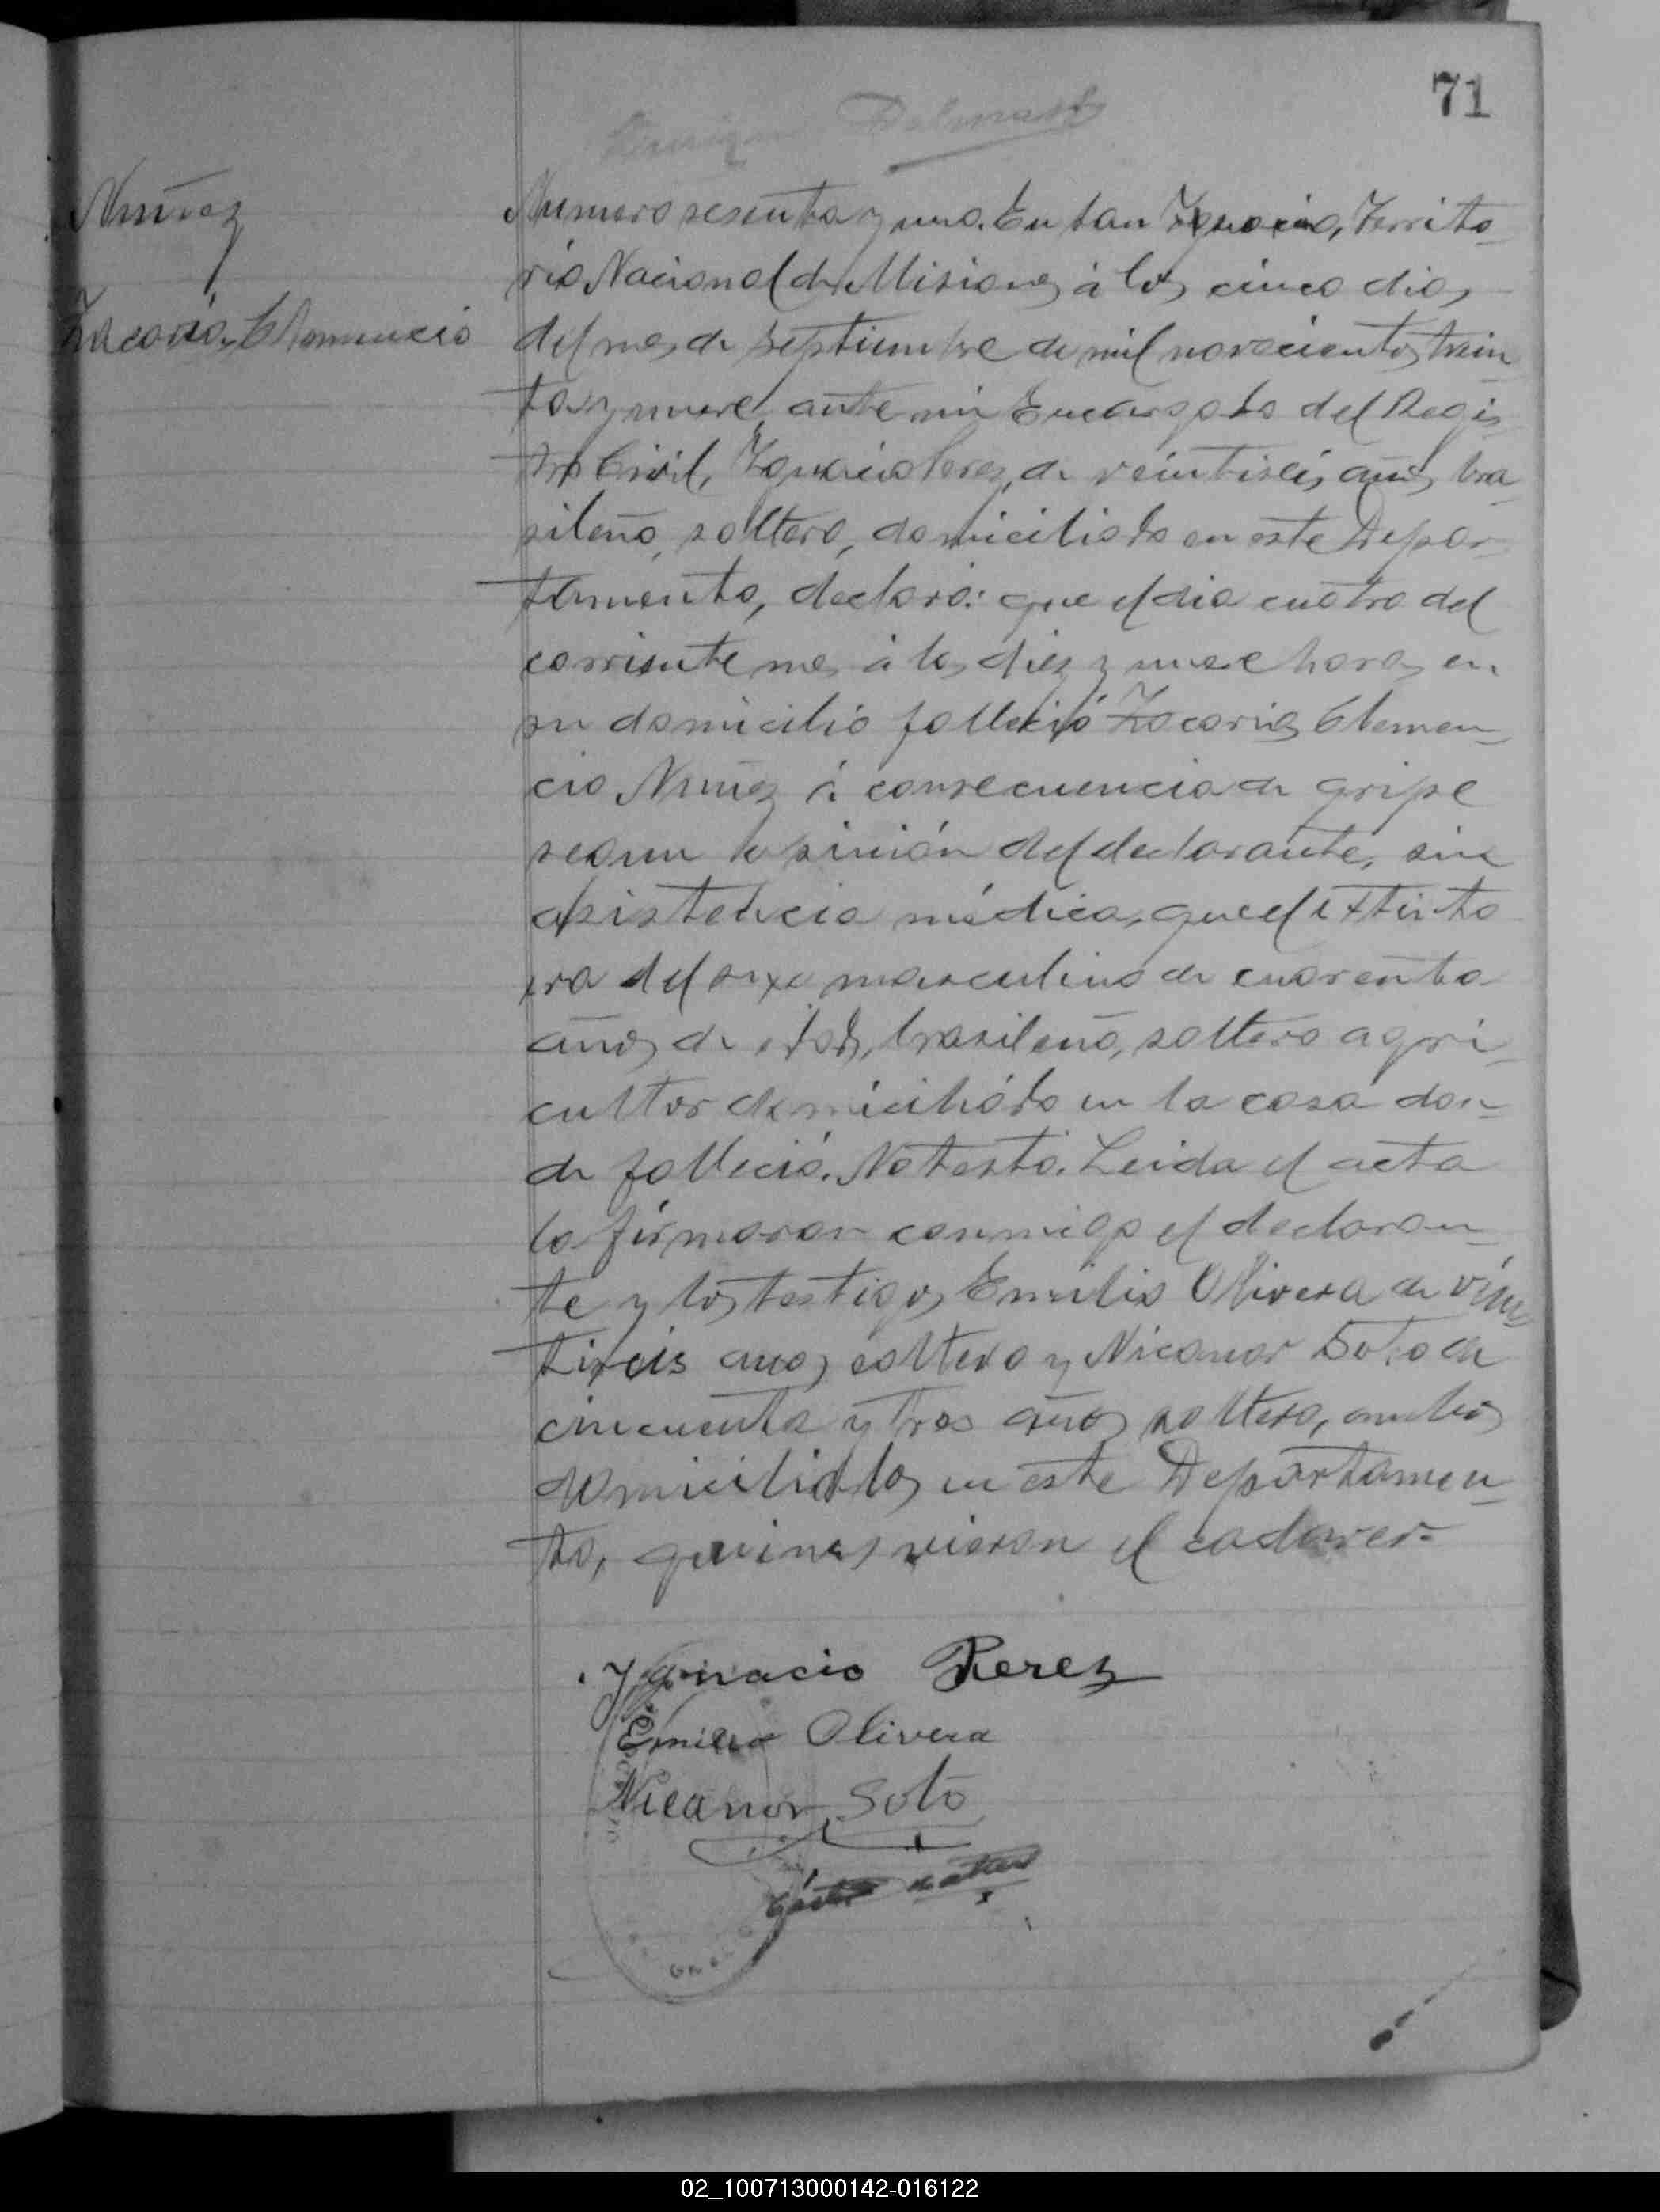 71
Nuñez
Zacarias Clemencio
Numero sesenta y uno. En San Ygnacio, Territo-
rio Nacional de Misiones á los cinco dias
del mes de Septiembre de mil novecientos trein
ta y nueve, ante mi Encargado del Regis-
tro Civil, Ygnacio Perez, de veintiseis años, bra-
sileño, soltero, domiciliado en este Depar-
tamento, declaró: que el dia cuatro del
corriente mes á las diez y nueve horas en
su domicilio falleció Zacarias Clemen-
cio Nuñez á consecuencia de gripe
segun la opinión del declarante, sin
asistencia médica, que el extinto
era del sexo masculino de cuarenta
años de edad, brasileño, soltero agri-
cultor domiciliado en la casa don-
de falleció. No testó. Leida el acta
la firmaron conmigo el declaran-
te y los testigos Emilio Olivera de vein-
tiseis años, soltero y Nicanor Soto de
cincuenta y tres años soltero, ambos
domiciliados en este Departamen-
to, quienes vieron el cadaver.=
Ygnacio Perez
Emilio Olivera
Nicanor Soto
02_100713000142-016122